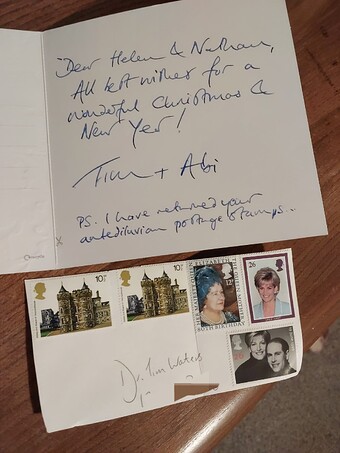 Dear Helen & Nathan,
All best wishes for a
wonderful Christmas &
New Year!
Tim + Abi
PS. I have returned your
antediluvian postage stamps..
10½P
10½P
ELIZABETH
12P
80TH BIRTHDAY
26
Dr. Tim Waters